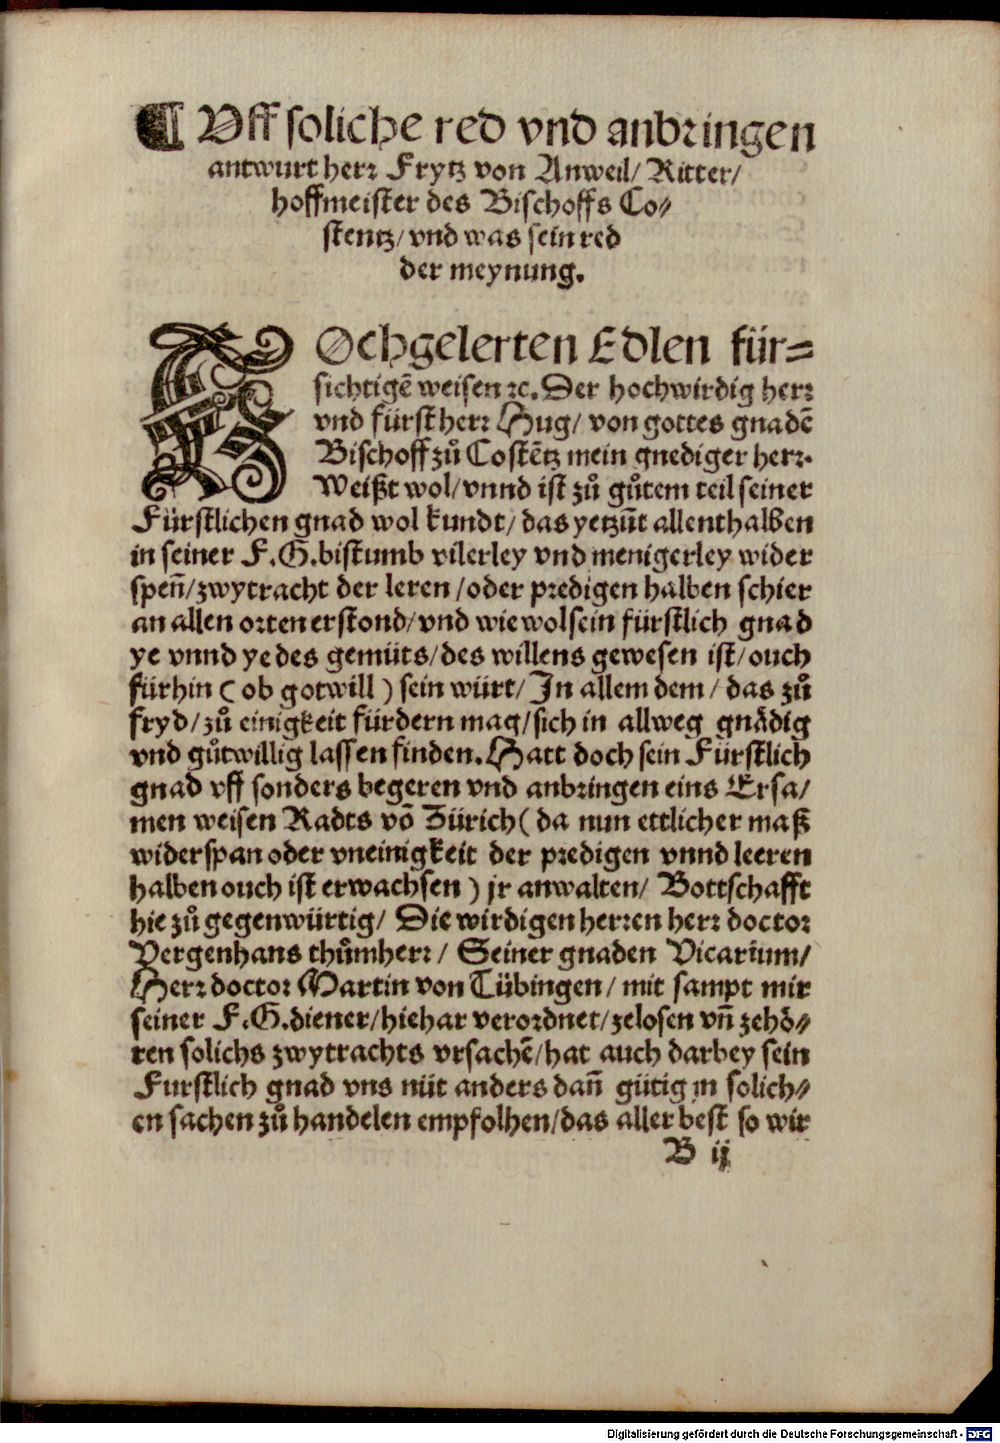 ¶ Uff soliche red vnd anbringen
antwurt herr Frytz von Anweil/ Ritter/
hoffmeister des Bischoffs Co⸗
stentz/ vnd was sein red
der meynung.
HOchgelerten Edlen für⸗
sichtigē weisen ꝛc. Der hochwirdig herr
vnd fürst herr Hug/ von gottes gnadē
Bischoff zů Costētz mein gnediger herr.
Weißt wol/ vnnd ist zů gůtem teil seiner
Fürstlichen gnad wol kundt/ das yetzūt allenthalben
in seiner F.G. bistumb vilerley vnd menigerley wider
spen̄/ zwytracht der leren/ oder predigen halben schier
an allen orten erstond/ vnd wiewol sein fürstlich gnad
ye vnnd ye des gemüts/ des willens gewesen ist/ ouch
fürhin ( ob got will ) sein würt/ In allem dem/ das zů
fryd/ zů einigkeit fürdern mag/ sich in allweg gnädig
vnd gůtwillig lassen finden. Hatt doch sein Fürstlich
gnad vff sonders begeren vnd anbringen eins Ersa/
men weisen Radts vō Zürich ( da nun ettlicher maß
widerspan oder vneinigkeit der predigen vnnd leeren
halben ouch ist erwachsen ) jr anwalten/ Bottschafft
hie zů gegenwürtig/ Die wirdigen herren herr doctor
Vergenhans thůmherr/ Seiner gnaden Vicarium/
Herr doctor Martin von Tübingen/ mit sampt mir
seiner F.G. diener/ hiehar verordnet/ zelosen vn̄ zehö⸗
ren solichs zwytrachts vrsachē/ hat auch darbey sein
Furstlich gnad vns nüt anders dan̄ gütig in solich⸗
en sachen zů handelen empfolhen/ das aller best so wir
B ij
Digitalisierung gefördert durch die Deutsche Forschungsgemeinschaft - DFG